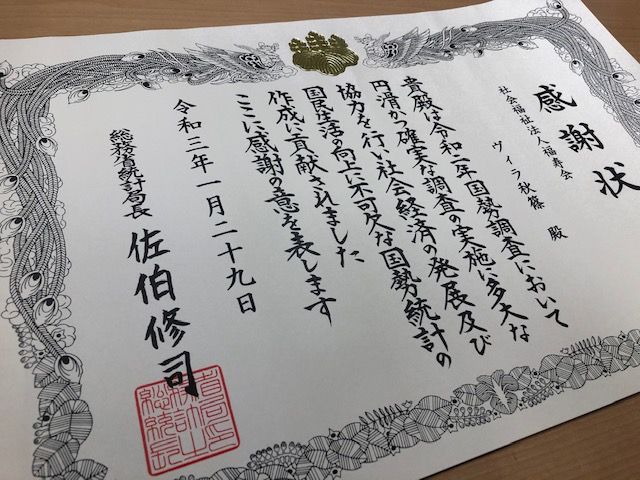 感謝状
社会福祉法人福寿会
ヴィラ秋篠 殿
貴殿は令和二年国勢調査において
円滑かつ確実な調査の実施に多大な
協力を行い社会経済の発展及び
国民生活の向上に不可欠な国勢統計の
作成に貢献されました
ここに感謝の意を表します
令和三年一月二十九日
総務省統計局長 佐伯修司